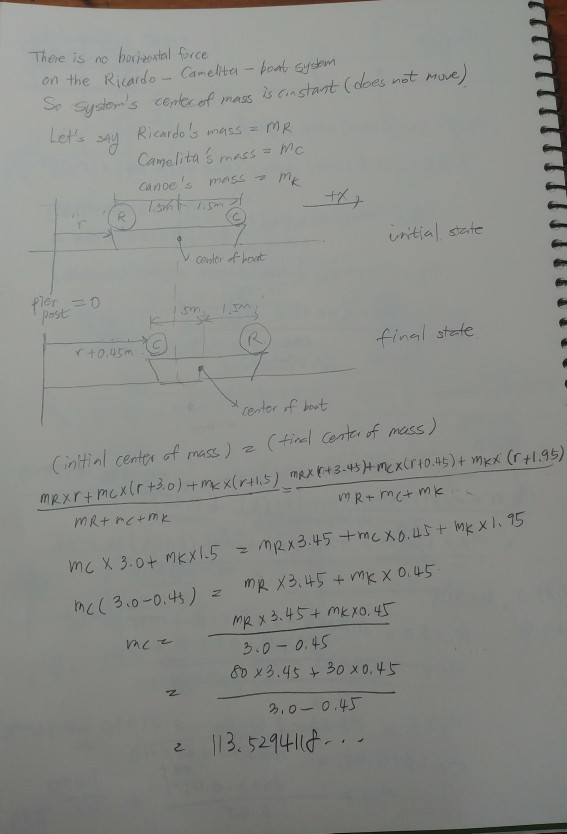 There is no horizontal force
on the Ricardo - Camelita - boat system
So system's center of mass is constant (does not move)
Let's say Ricardo's mass = mR
Camelita's mass = mC
canoe's mass = mK
1.5m 1.5m
+x
r R C
initial state
center of boat
pier post = 0
1.5m 1.5m
r+0.45m C R
final state
center of boat
(initial center of mass) = (final center of mass)
mR×r+mC×(r+3.0)+mK×(r+1.5) = mR×(r+3.45)+mC×(r+0.45)+mK×(r+1.95)
mR+mC+mK mR+mC+mK
mC×3.0+mK×1.5 = mR×3.45+mC×0.45+mK×1.95
mC(3.0-0.45) = mR×3.45+mK×0.45
mR×3.45+mK×0.45
mC =
3.0-0.45
80×3.45+30×0.45
=
3.0-0.45
= 113.5294118...